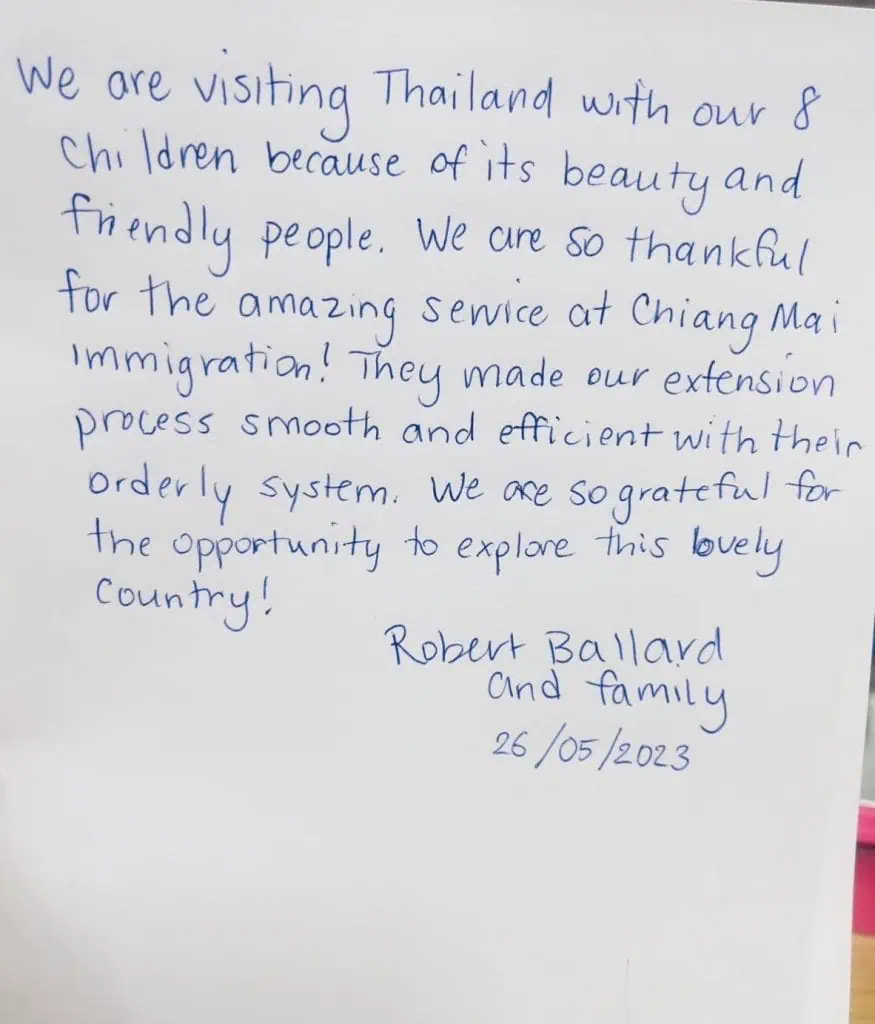 We are visiting Thailand with our 8
Children because of its beauty and
friendly people. We are so thankful
for the amazing service at Chiang Mai
immigration! They made our extension
process smooth and efficient with their
orderly system. We are so grateful for
the opportunity to explore this lovely
Country!
Robert Ballard
and family
26/05/2023